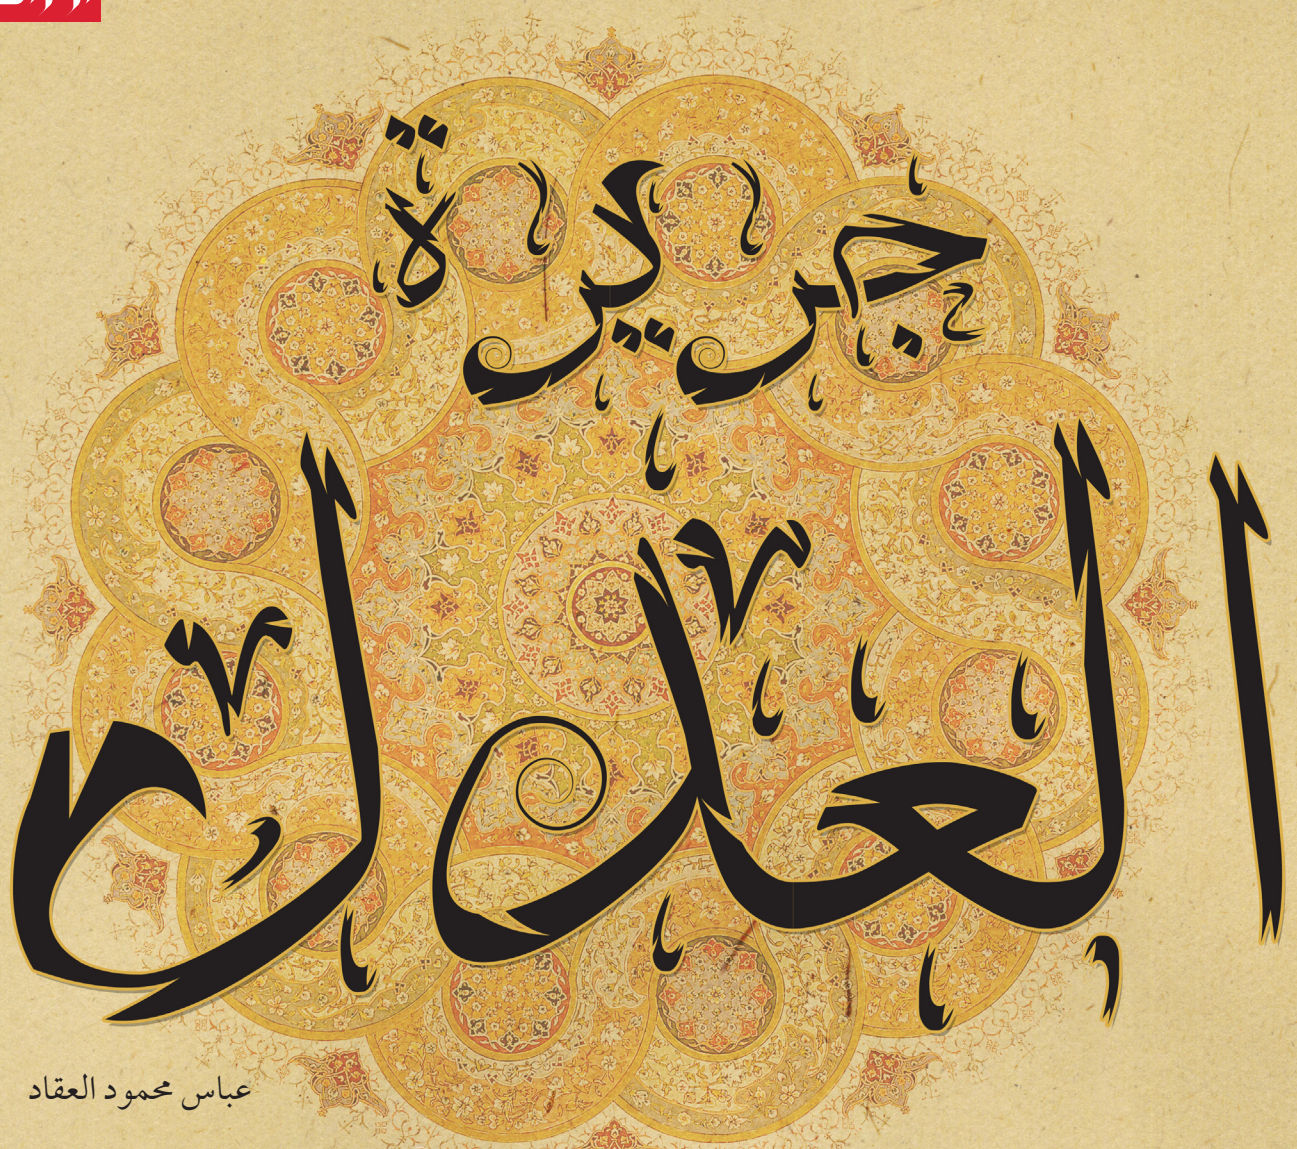 جريرة
العدل
عباس محمود العقاد